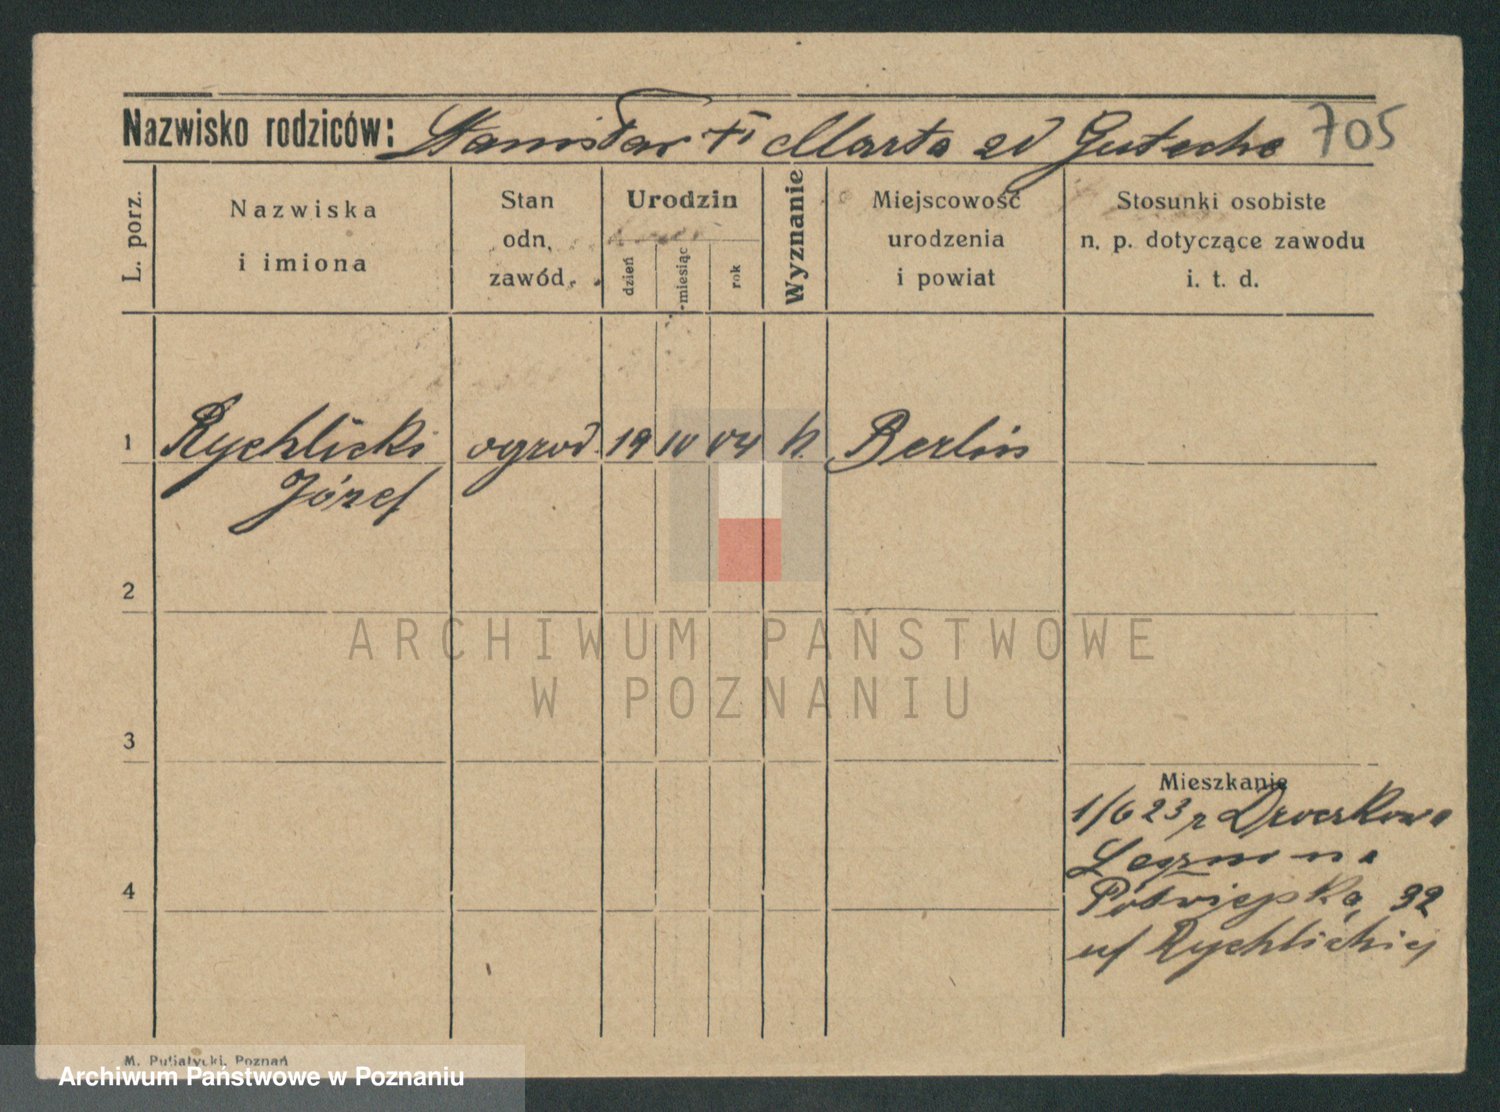 Nazwisko rodziców: Stanisław + i Marta zd Gutsche 705
L. porz.
Nazwiska
i imiona
Stan
odn.
zawód
Urodzin
dzień
miesiąc
rok
Wyznanie
Miejscowość
urodzenia
i powiat
Stosunki osobiste
n. p. dotyczące zawodu
i. t. d.
1 Rychlicki ogrod. 19 10 04 k. Berlin
Józef
2
3
4
Mieszkanie
1/6 23 z
Półwiejska 32
u/ Rychlickiej
ARCHIWUM PAŃSTWOWE
W POZNANIU
M. Putiatycki, Poznań
Archiwum Państwowe w Poznaniu